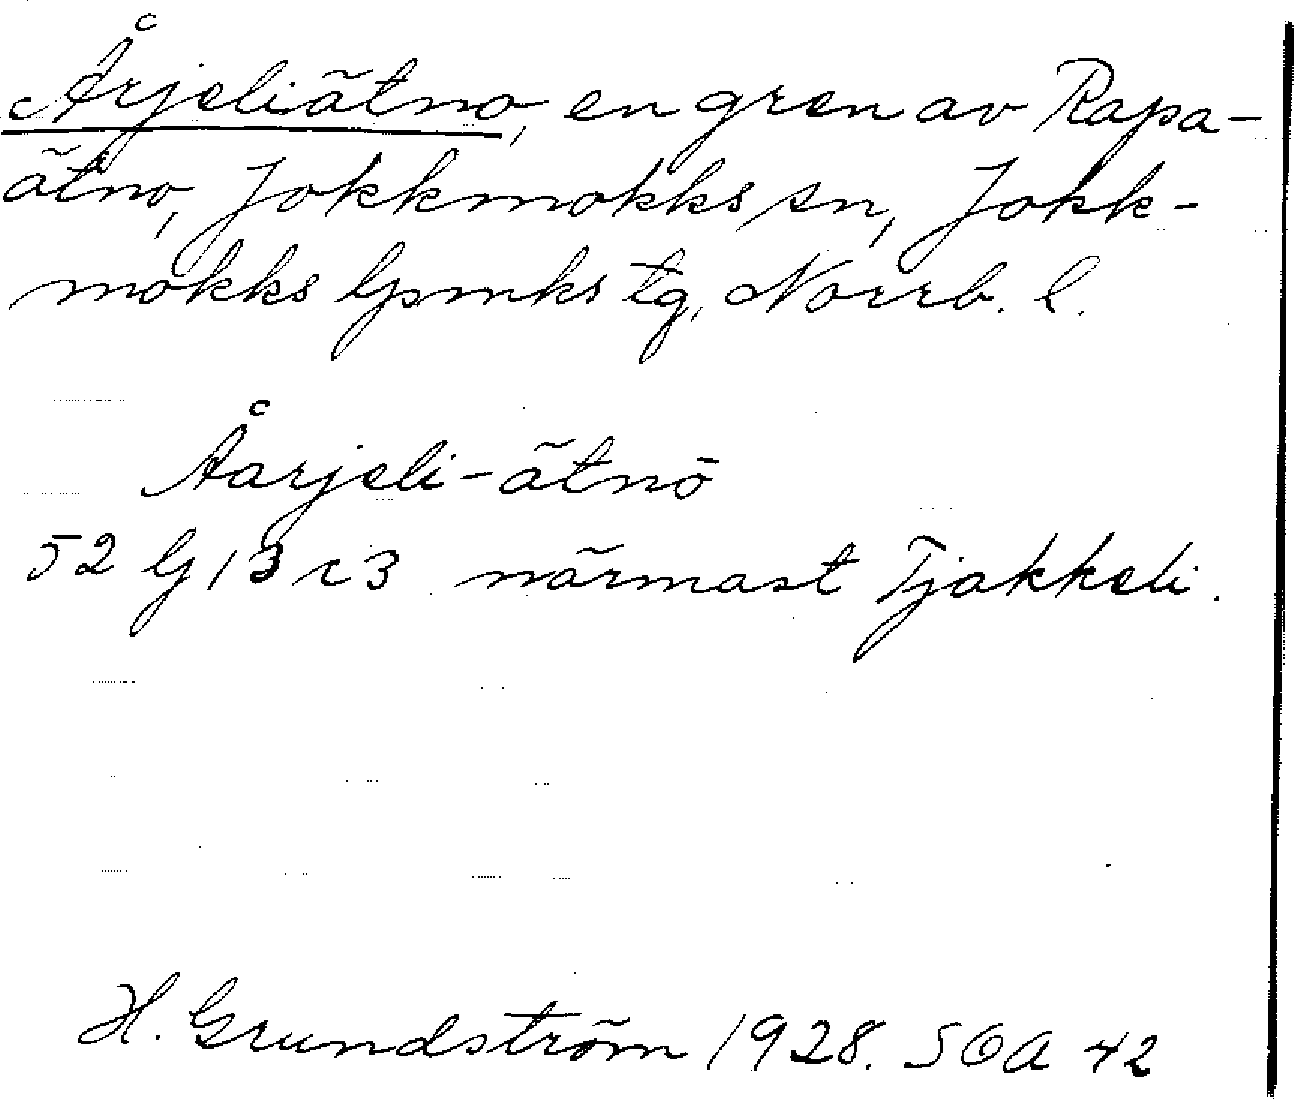 Årjeliätno, en gren av Rapa-
ätno, Jokkmokks sn, Jokk-
mokks lpmks tg, Norrb. l.
Åarjeli-ätnō
52 G 13 r 3 närmast Tjakkeli.
H. Grundström 1928. SOA 42